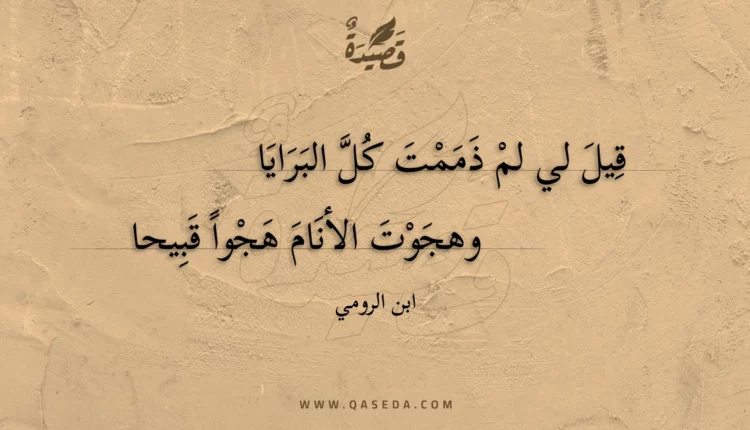 قَصِيدَةٌ
قِيلَ لي لمْ ذَمَمْتَ كُلَّ البَرَايَا
وهجَوْتَ الأنَامَ هَجْواً قَبِيحا
ابن الرومي
WWW.QASEDA.COM